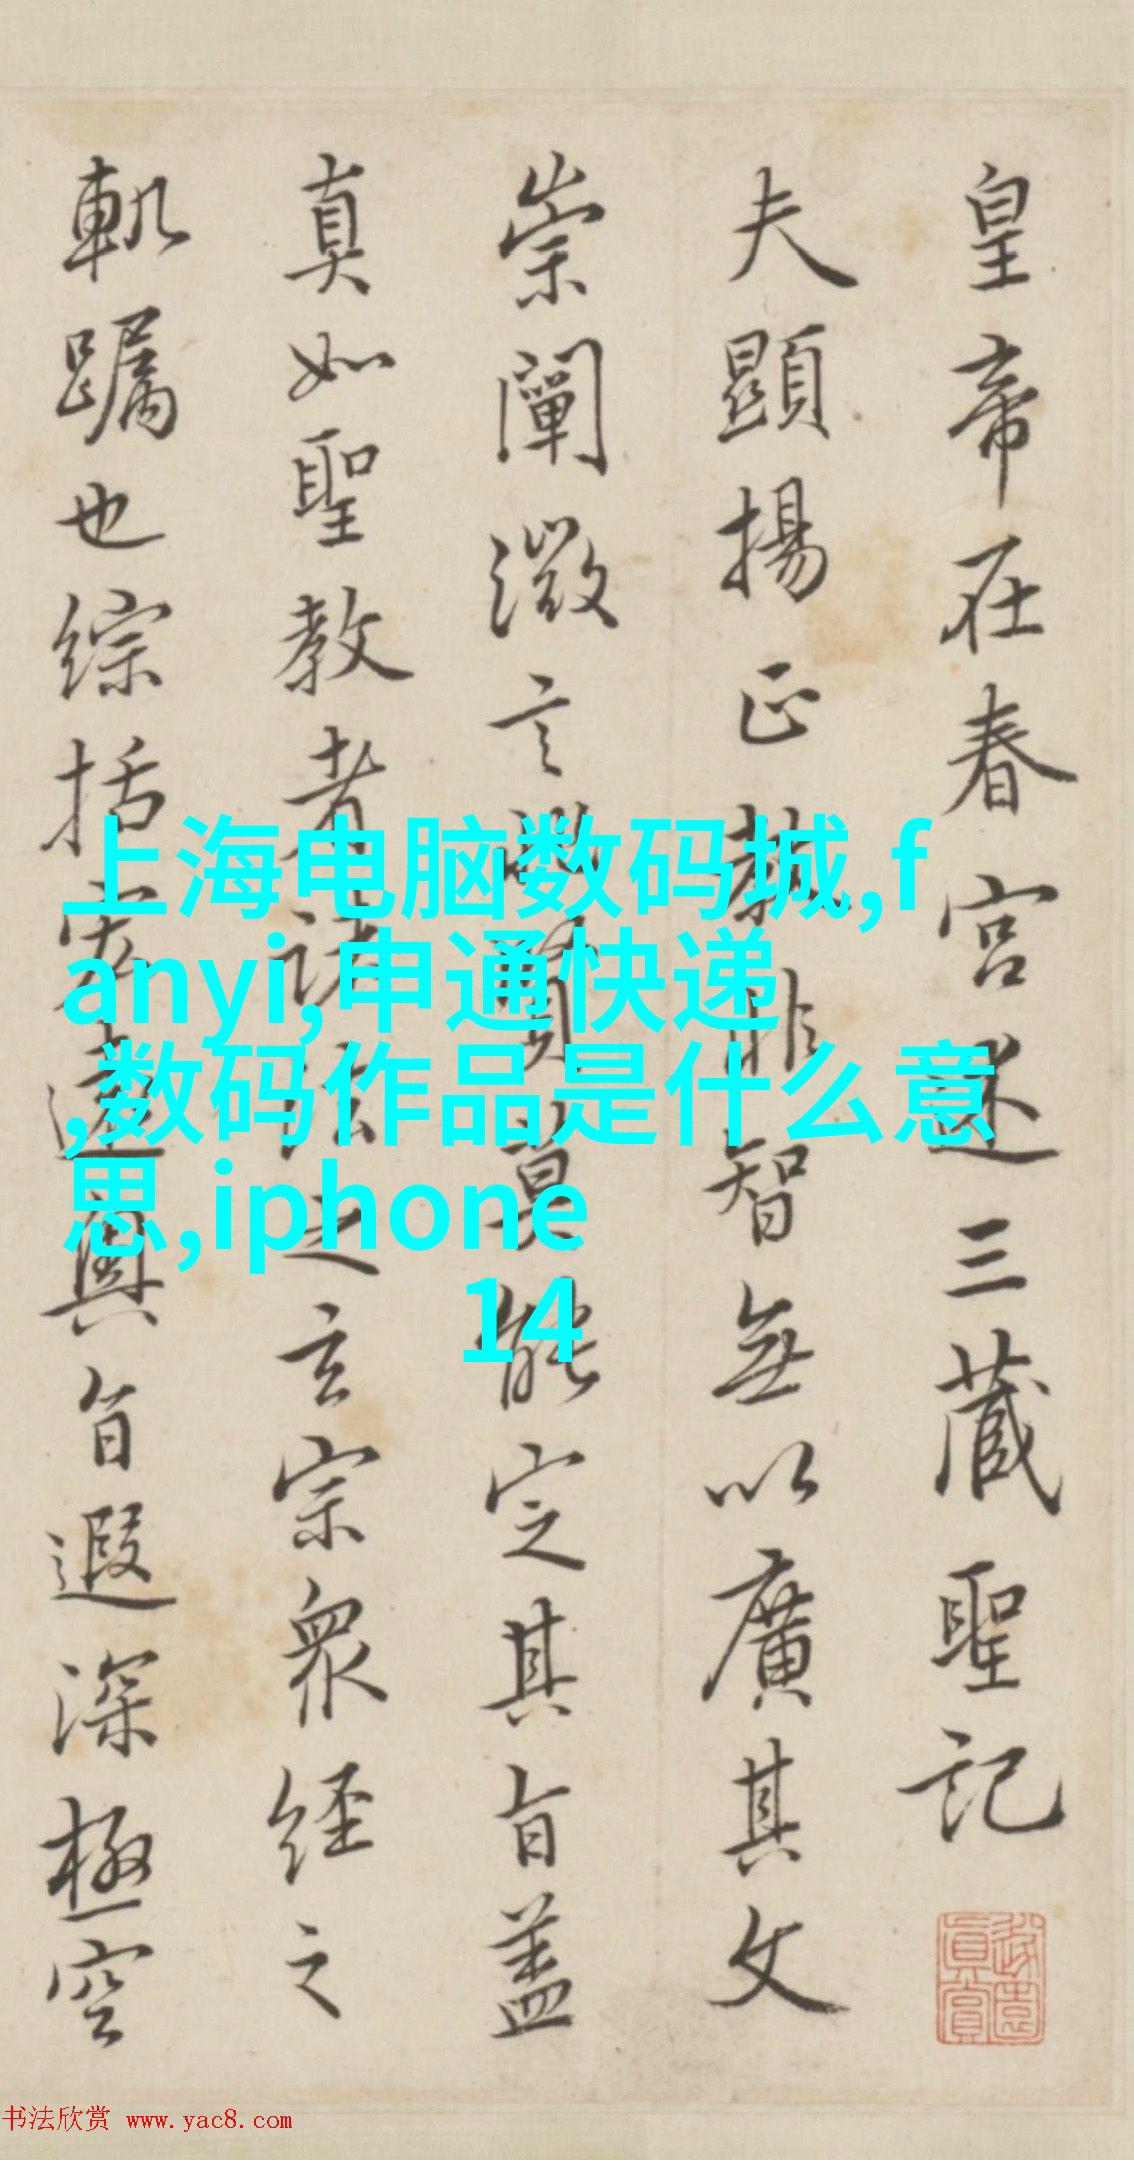 皇帝在春宫述三藏聖記
夫顯揚正教非智無以廣其文
崇闡微言非賢莫能定其旨蓋
真如聖教者諸法之玄宗衆經之
軌躅也綜括宏遠奥旨遐深極空
上海电脑数码城,f
anyi,申通快递
,数码作品是什么意
思,iphone
14
书法欣赏 www.yac8.com